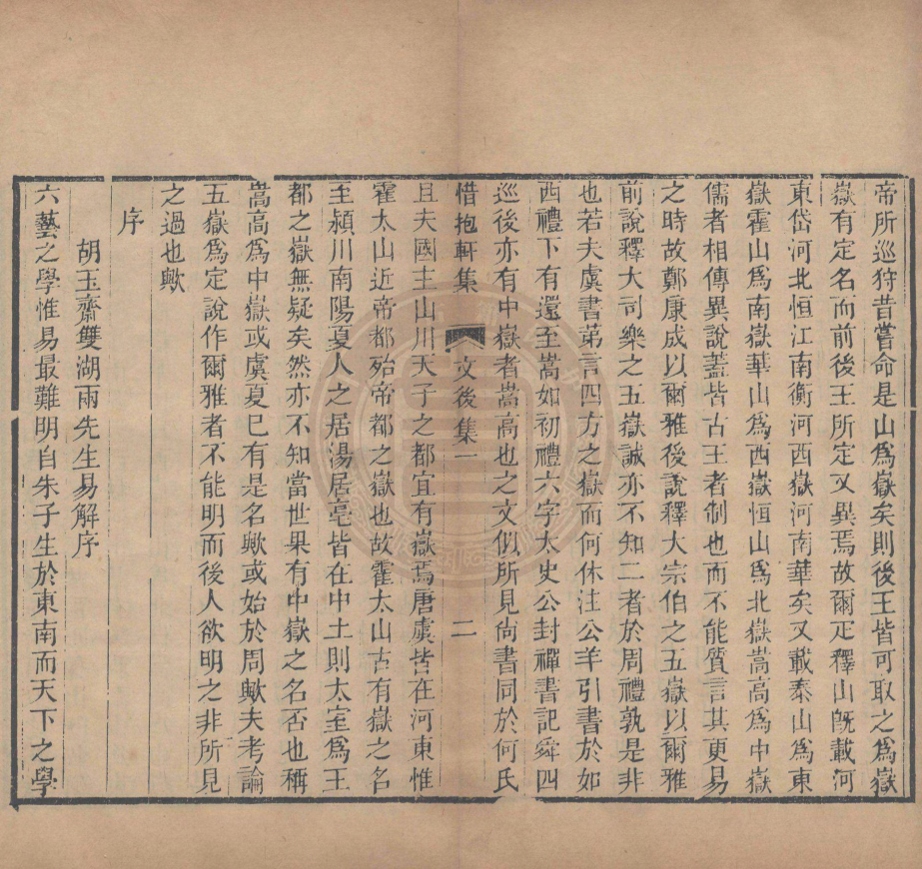 帝所巡狩昔嘗命是山爲嶽矣則後王皆可取之爲嶽
嶽有定名而前後王所定又異焉故爾疋釋山旣載河
東岱河北恒江南衡河西嶽河南華矣又載泰山爲東
嶽霍山爲南嶽華山爲西嶽恒山爲北嶽嵩高爲中嶽
儒者相傳異說蓋皆古王者制也而不能質言其更易
之時故鄭康成以爾雅後說釋大宗伯之五嶽以爾雅
前說釋大司樂之五嶽誠亦不知二者於周禮孰是非
也若夫虞書第言四方之嶽而何休注公羊引書於如
西禮下有還至嵩如初禮六字太史公封禪書記舜四
巡後亦有中嶽者嵩高也之文似所見尚書同於何氏
惜抱軒集 文後集一 二
且夫國主山川天子之都宜有嶽焉唐虞皆在河東惟
霍太山近帝都殆帝都之嶽也故霍太山古有嶽之名
至潁川南陽夏人之居湯居亳皆在中土則太室爲王
都之嶽無疑矣然亦不知當世果有中嶽之名否也稱
嵩高爲中嶽或虞夏已有是名歟或始於周歟夫考論
五嶽爲定說作爾雅者不能明而後人欲明之非所見
之過也歟
序
胡玉齋雙湖兩先生易解序
六藝之學惟易最難明自朱子生於東南而天下之學